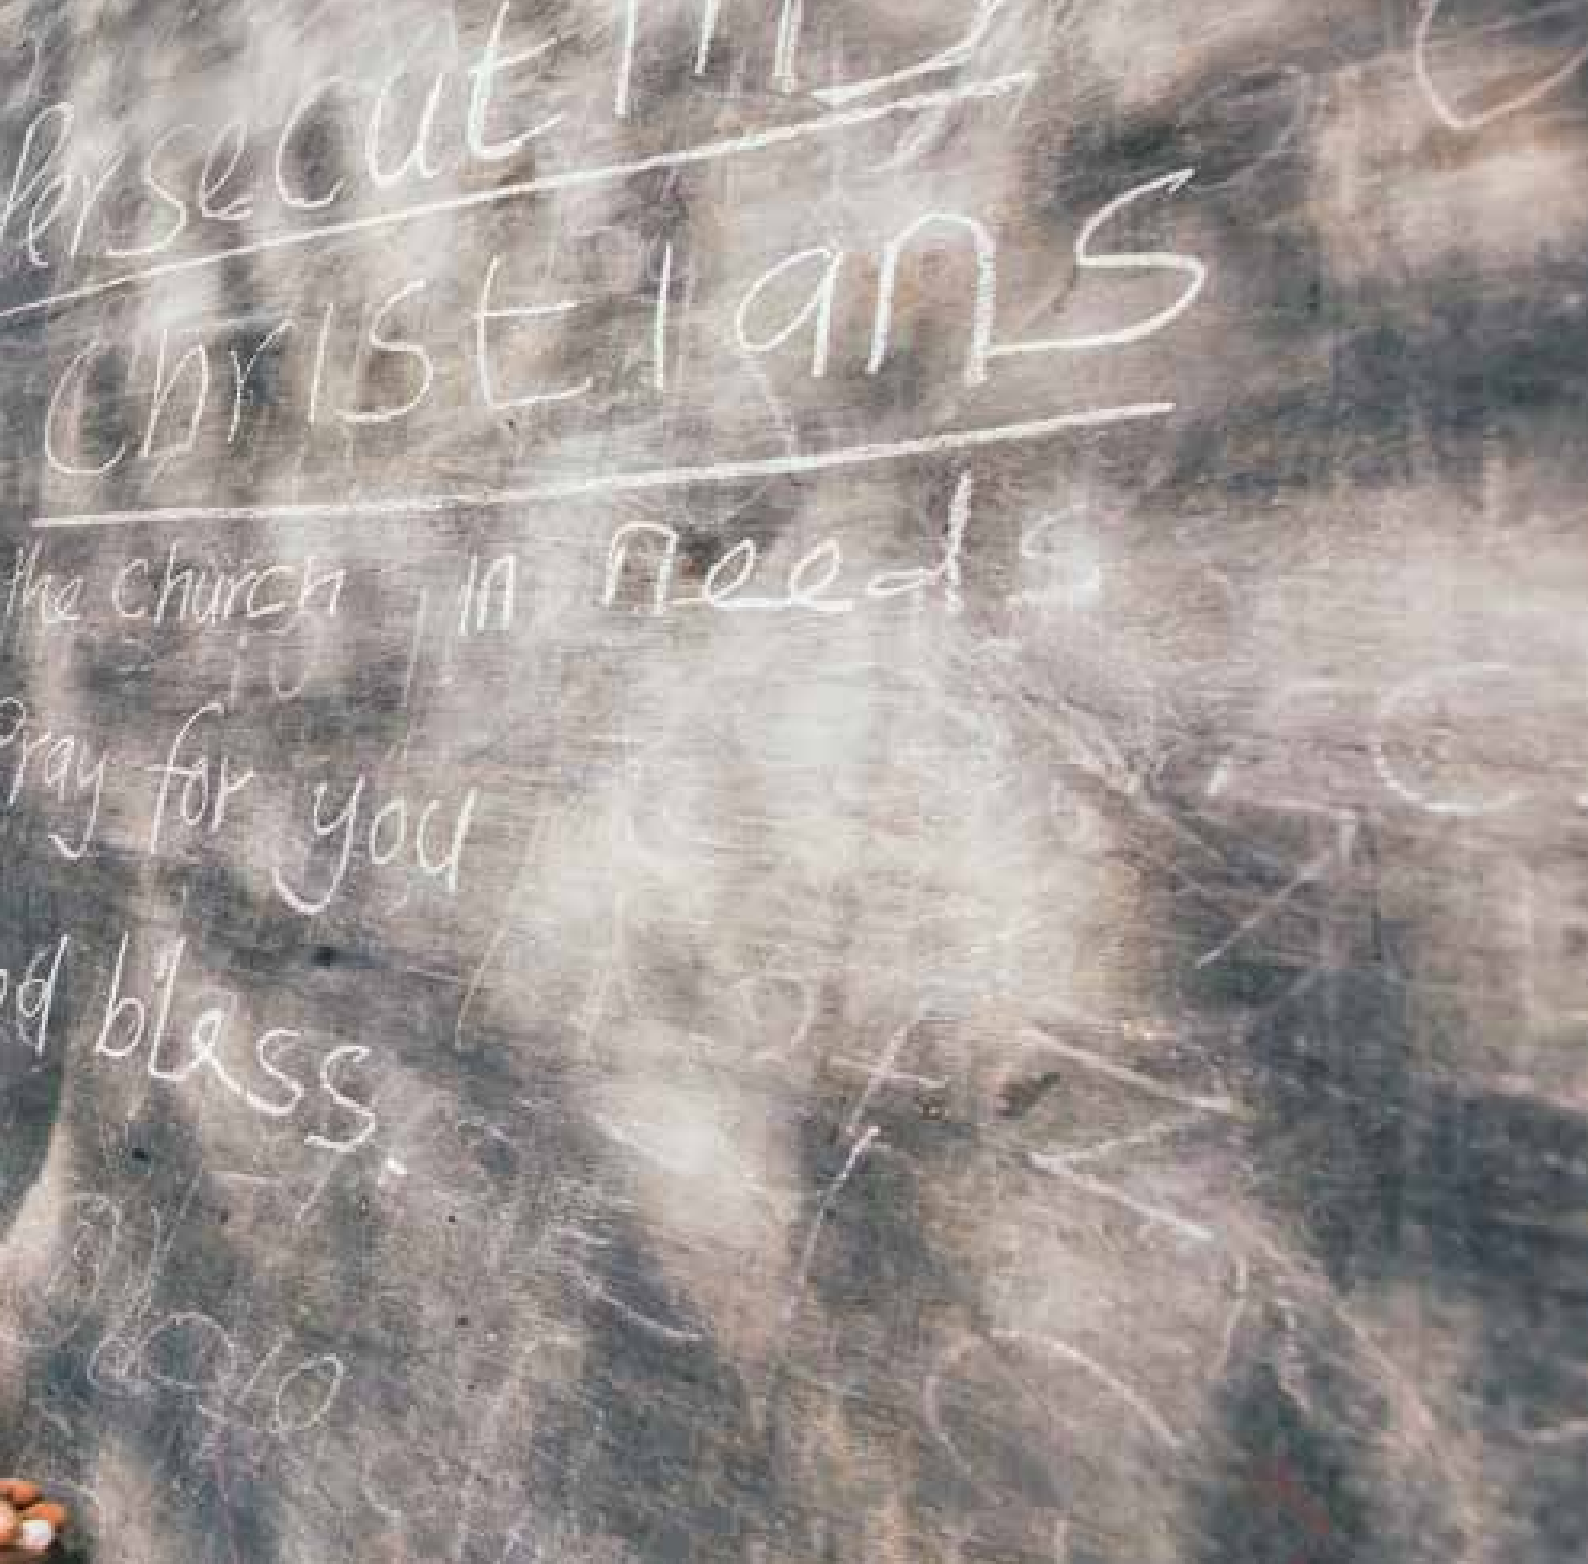 Persecuting
Christians
the church in needs
Pray for you
bless.